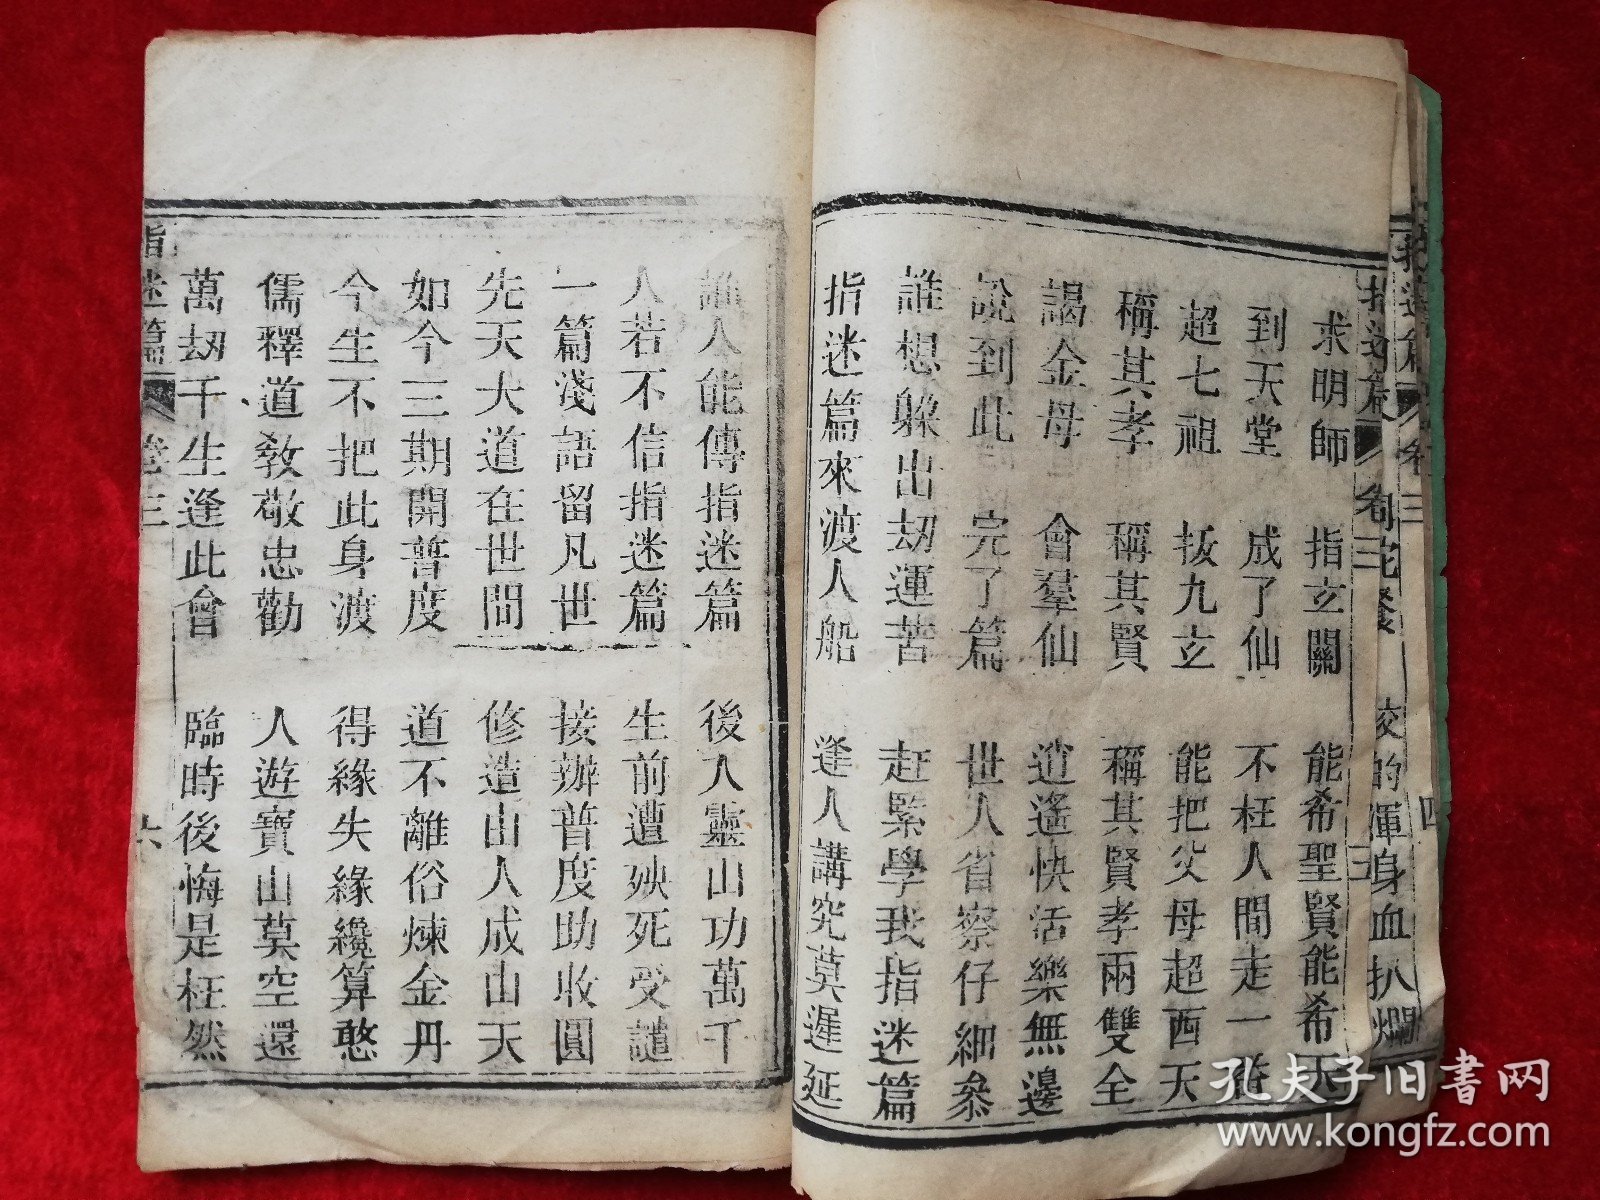 求明師 指玄關 能希聖賢能希天
到天堂 成了仙 不枉人間走一番
超七祖 拔九玄 能把父母超西天
稱其孝 稱其賢 稱其賢孝兩雙全
謁金母 會羣仙 逍遙快活樂無邊
說到此 完了篇 世人省察仔細叅
誰想躱出刼運苦 赶緊學我指迷篇
指迷篇來渡人船 逢人講究莫遲延
誰人能傳指迷篇 後入靈山功萬千
人若不信指迷篇 生前遭殃死受譴
一篇淺語留凡世 接辦普度助收圓
先天大道在世間 修造山人成山天
如今三期開普度 道不離俗煉金丹
今生不把此身渡 得緣失緣纔算憨
儒釋道敎敬忠勸 人遊寶山莫空還
萬刼千生逢此會 臨時後悔是枉然
指迷篇 卷三 六
指迷篇 卷三
渾身血扒爛
孔夫子旧書网
www.kongfz.com